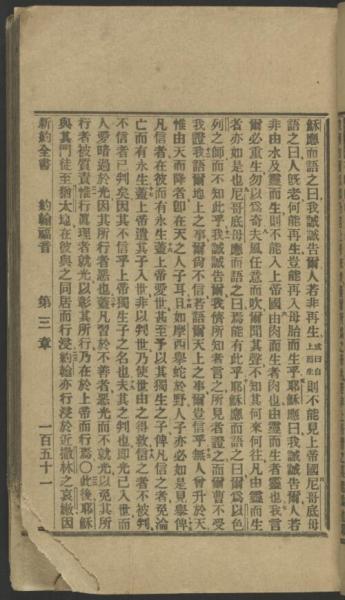 穌應而語之曰我誠誠告爾人若非再生或曰自上而生則不能見上帝國尼哥底母
語之曰人旣老何能再生豈能再入母胎而生乎耶穌應曰我誠誠告爾人若
非由水及靈而生則不能入上帝國由肉而生者肉也由靈而生者靈也我言
爾必重生勿以爲奇夫風任意而吹爾聞其聲不知其何來何往凡由靈而生
者亦如是也尼哥底母應而語之曰焉能有此乎耶穌應而語之曰爾爲以色
列之師而不知此乎我誠誠告爾我儕所知者言之所見者證之而爾曹不受
我證我語爾地上之事爾尙不信若語爾天上之事爾豈信乎無人曾升於天
惟由天而降者卽在天之人子耳曰如摩西舉蛇於野人子亦必如是見舉俾
凡信者在彼而有永生蓋上帝愛世甚至予以其獨生之子俾凡信之者免淪
亡而有永生蓋上帝遣其子入世非以判世乃使世由之得救信之者不被判
不信者已判矣因其不信乎上帝獨生子之名也夫其之判也卽光已入世而
人愛暗過於光因其所行者惡也蓋凡習於不善者惡光而不就光以免其所
行者被質責惟行眞理者就光以彰其所行乃在於上帝而行焉〇此後耶穌
與其門徒至猶太地在彼與之同居而行浸約翰亦行浸於近撒林之哀嫩因
新約全書 約翰福音 第三章 一百五十一